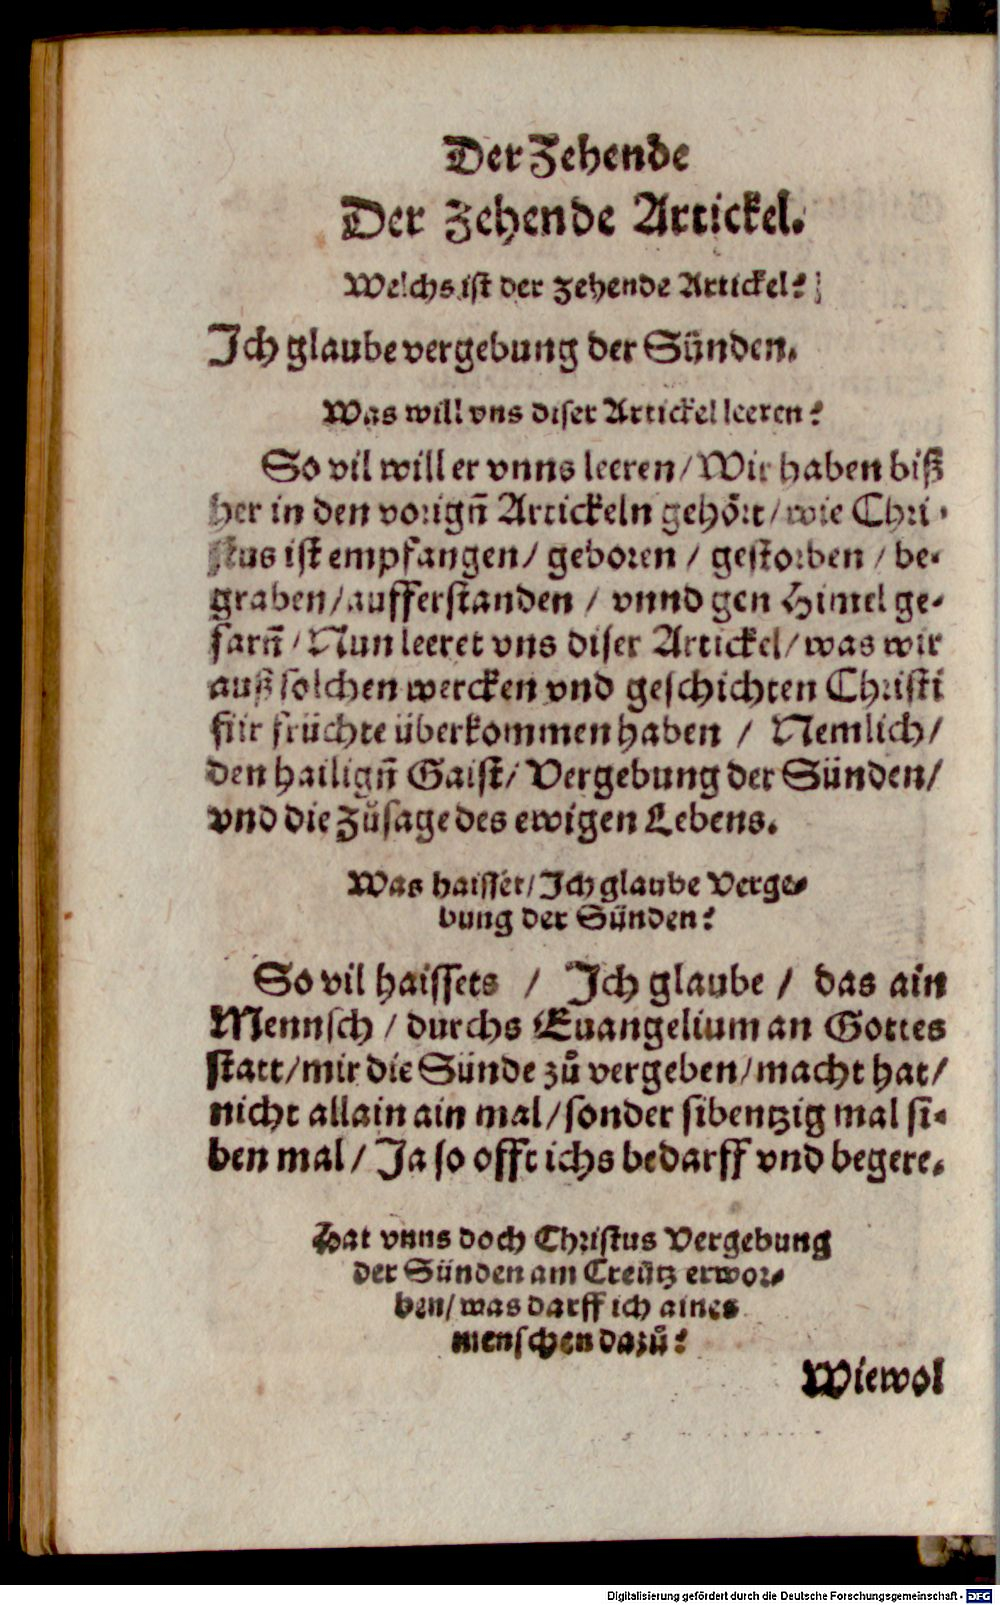 Der Zehende
Der zehende Artickel.
Welchs ist der zehende Artickel?
Ich glaube vergebung der Sünden.
Was will vns diser Artickel leeren?
So vil will er vnns leeren/ Wir haben biß
her in den vorignn̄ Artickeln gehört/ wie Chri-
stus ist empfangen/ geboren / gestorben / be-
graben/ aufferstanden / vnnd gen Himel ge-
farn̄/ Nun leeret vns diser Artickel/ was wir
auß solchen wercken vnd geschichten Christi
für früchte überkommen haben / Nemlich/
den hailign̄ Gaist/ Vergebung der Sünden/
vnd die Zůsage des ewigen Lebens.
Was haisset/ Ich glaube Verge-
bung der Sünden?
So vil haissets / Ich glaube / das ain
Mennsch / durchs Euangelium an Gottes
statt/ mir die Sünde zů vergeben/ macht hat/
nicht allain ain mal/ sonder sibentzig mal si-
ben mal/ Ja so offt ichs bedarff vnd begere.
Hat vnns doch Christus Vergebung
der Sünden am Creütz erwor-
ben/ was darff ich aines
menschen dazů?
Wiewol
Digitalisierung gefördert durch die Deutsche Forschungsgemeinschaft - DFG